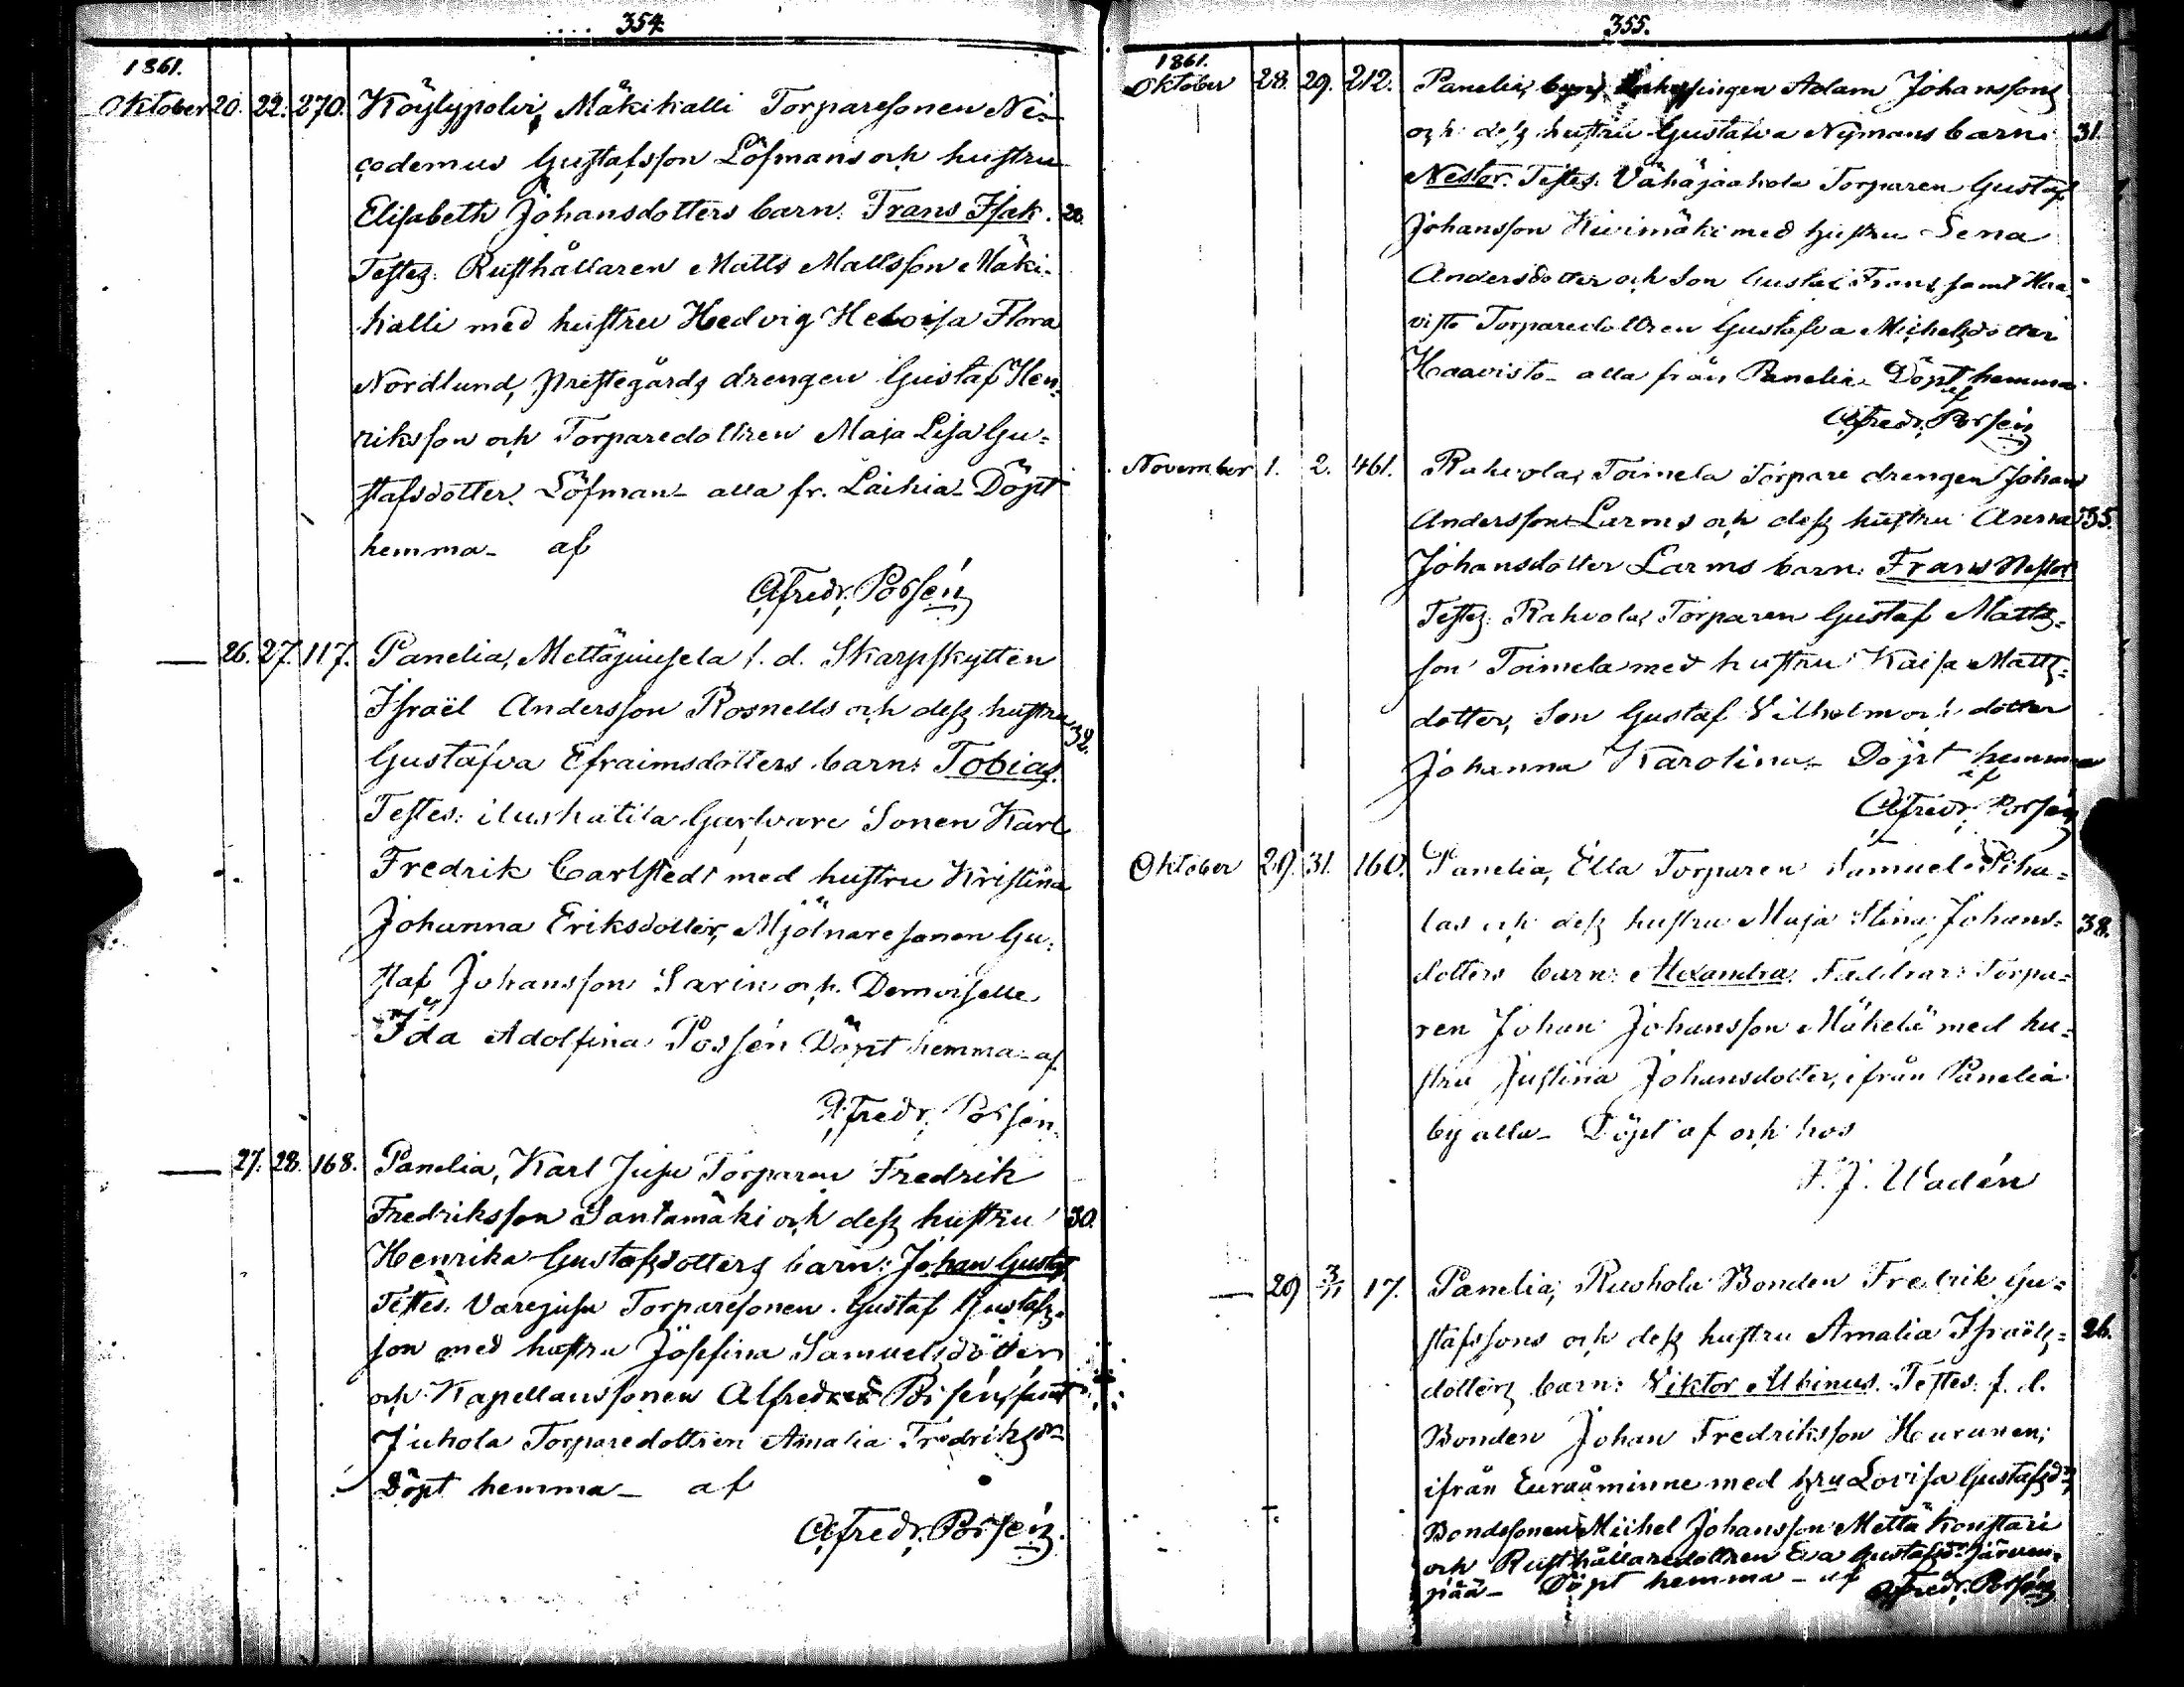 354.
1861.
Oktober 20. 22. 270. Köylypolvi, Mäkikalli Torparesonen Ni-
codemus Gustafsson Löfmans och hustru
Elisabeth Johansdotters barn: Frans Isak. 20.
Testes: Rusthållaren Matts Mattsson Mäki-
kalli med hustru Hedvig Heloisa Flora
Nordlund, Prestegårds drengen Gustaf Hen-
riksson och Torparedottren Maja Lisa Gu-
stafsdotter Löfman - alla fr. Laihia - Döpt
hemma - af
A. Fredr. Possén
— 26. 27. 117. Panelia, Mettäjuusela f. d. Skarpskytten
Israël Andersson Rosnells och dess hustru
Gustafva Efraimsdotters barn: Tobias. 32.
Testes: Garfvare Sonen Karl
Fredrik Carlstedt med hustru Kristina
Johanna Eriksdotter, Mjölnaresonen Gu-
staf Johansson Savin och Demoiselle
Ida Adolfina Possén Döpt hemma - af
A. Fredr. Possén.
— 27. 28. 168. Panelia, Karl Juju Torparen Fredrik
Fredriksson Santamäki och dess hustru 30.
Henrika Gustafsdotters barn: Johan Gustaf
Testes: Torparesonen Gustaf Gustafs-
son med hustru Josefina Samuelsdotter
och Kapellanssonen Alfred Possén, samt
Juhola Torparedottren Amalia Fredriksdr
Döpt hemma - af
A. Fredr. Possén.
355.
1861.
Oktober 28. 29. 212. Panelia, by, Adam Johanssons
och dess hustru Gustafva Nymans barn: 31.
Nestor. Testes: Vähäjaakola Torparen Gustaf
Johansson Kivimäki med hustru Lena
Andersdotter och Son Gustaf Frans samt Haa-
visto Torparedottren Gustafva Michelsdotter
Haavisto - alla från Panelia - Döpt hemma
af
A. Fredr. Possén
November 1. 2. 461. Rahvola, Toimela Torpare drengen Johan
Andersson Larms och dess hustru Anna 35.
Johansdotter Larms barn: Frans Nestor
Testes: Rahvola, Torparen Gustaf Matts-
son Toimela med hustru Kaisa Matts-
dotter, Son Gustaf Vilhelm och dotter
Johanna Karolina - Döpt hemma
af
A. Fredr. Possén
Oktober 29. 31. 160. Panelia, Ella Torparen Samuel Piha-
las och dess hustru Maja Stina Johans- 38.
dotters barn: Alexandra. Faddrar: Torpa-
ren Johan Johansson Mäkelä med hu-
stru Justina Johansdotter, ifrån Panelia
by alla - Döpt af och hos
F. J. Wadén
— 29 3/11 17. Panelia, Ruohola Bonden Fredrik Gu-
stafssons och dess hustru Amalia Israëls- 26.
dotters barn: Viktor Albinus. Testes: f. d.
Bonden Johan Fredriksson Hurunen,
ifrån Euraåminne med hru Lovisa Gustafsdr,
Bondesonen Michel Johansson Mettä Konstari
och Rusthållaredottren Eva Gustafsdr Järven-
pää - Döpt hemma - af A. Fredr. Possén